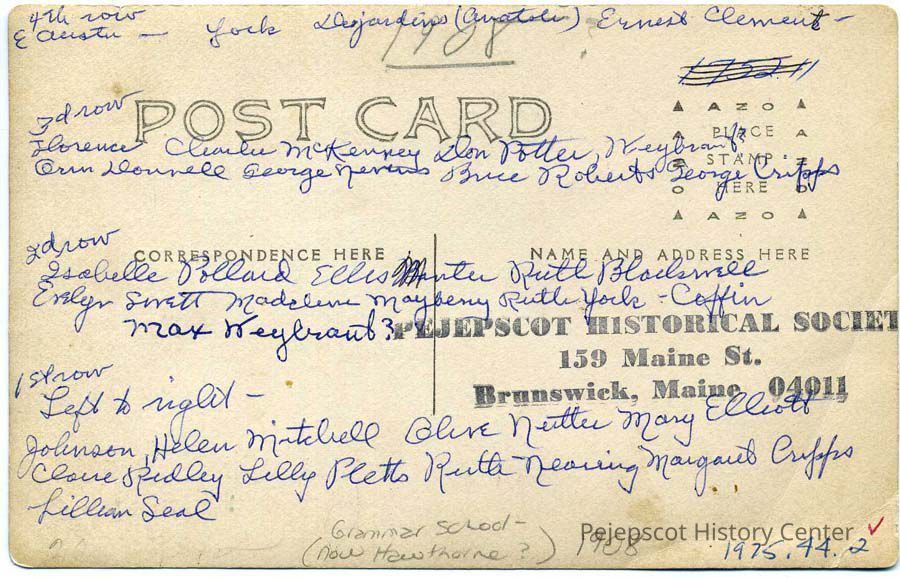 4th row
E Austin — York Desjardins (Anatole) Ernest Clement —
1908
1752.11
POST CARD
AZO
PLACE
STAMP
HERE
AZO
3d row
Florence Charlie McKenney Don Potter, Weybrant?
Orin Donnell George Nevens Bruce Roberts George Cripps
2d row
CORRESPONDENCE HERE
NAME AND ADDRESS HERE
Isabelle Pollard Ellis Ruth Blackwell
Evelyn Swett Madeleine Mayberry Ruth York - Coffin
Max Weybrant?
PEJEPSCOT HISTORICAL SOCIET
159 Maine St.
Brunswick, Maine 04011
1st row
Left to right —
Johnson, Helen Mitchell Olive Mary Elliott
Claire Ridley Lilly Pletts Ruth Nearing Margaret Cripps
Lillian Seal
Grammar School -
(now Hawthorne?)
1908
Pejepscot History Center
1975.44.2